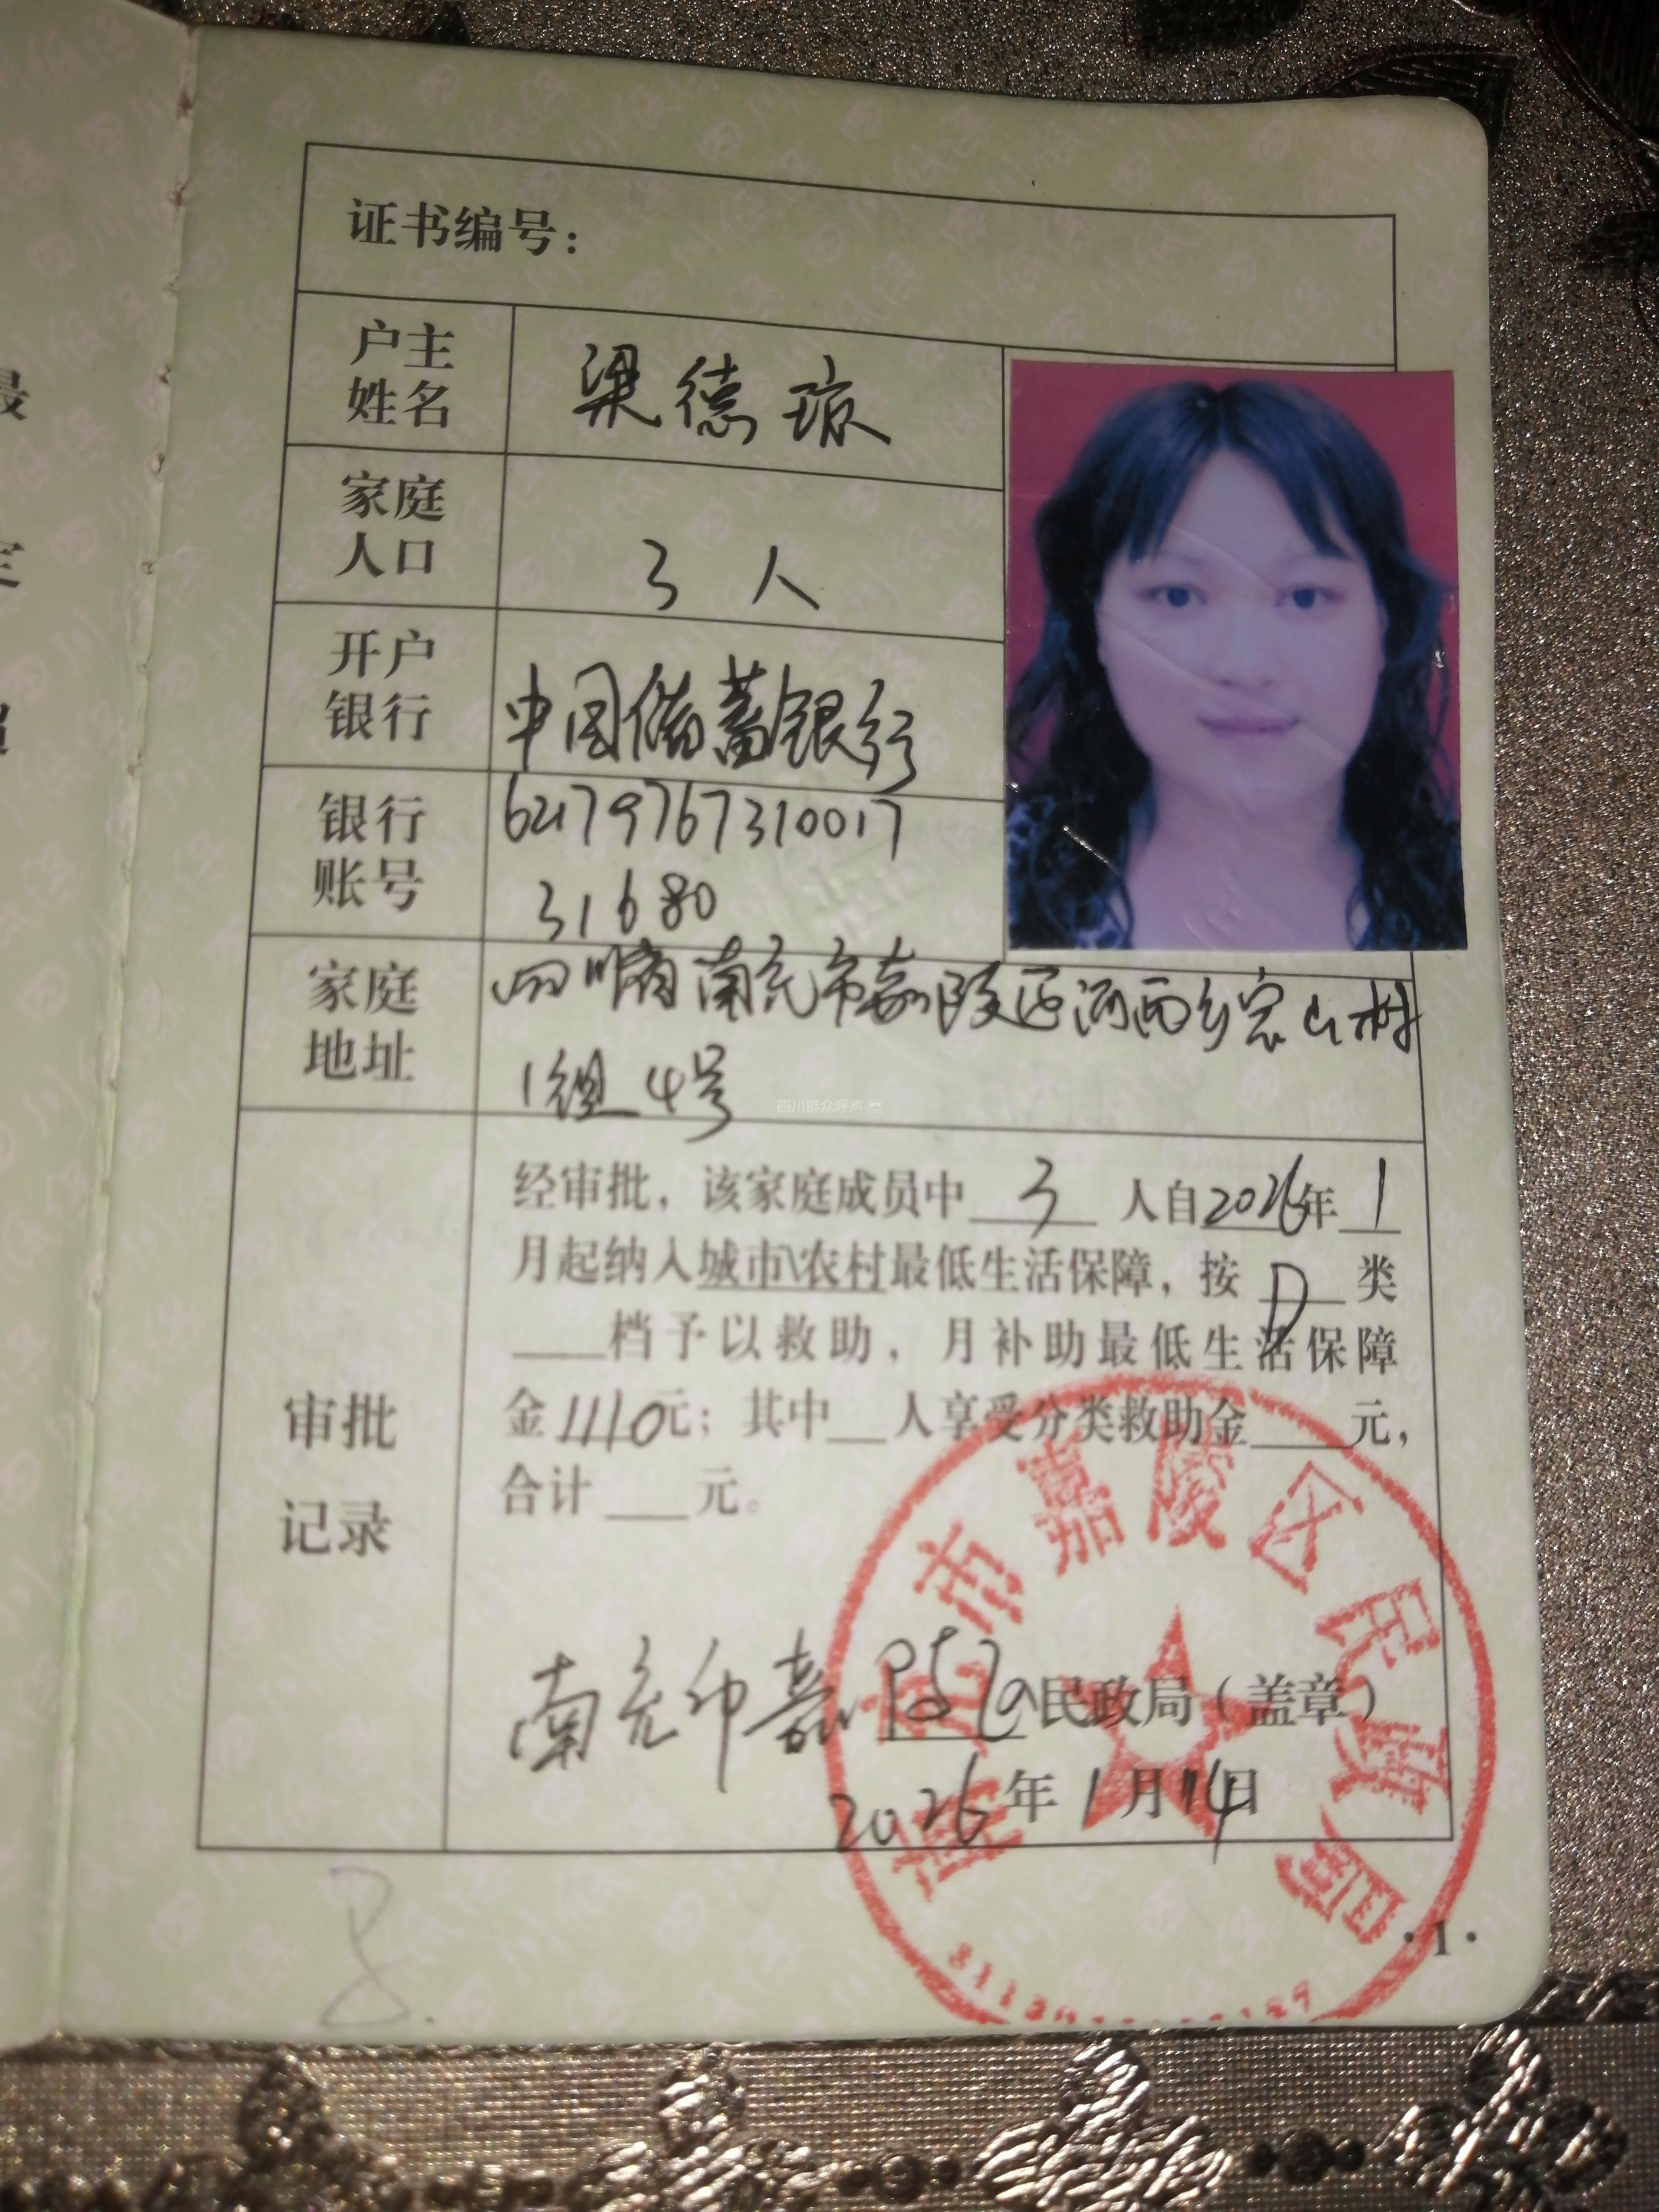 证书编号：
户主姓名 梁德琼
家庭人口 3人
开户银行 中国储蓄银行
银行账号 62179767310017
31680
家庭地址 四川省南充市嘉陵区河西乡宗山村
1组4号
四川群众呼声
审批记录
经审批，该家庭成员中 3 人自2026年 1
月起纳入城市\农村最低生活保障，按 D 类
___档予以救助，月补助最低生活保障
金1110元；其中__人享受分类救助金___元，
合计___元。
南充市嘉陵区民政局（盖章）
2026年1月14日
南充市嘉陵区民政局
·1·